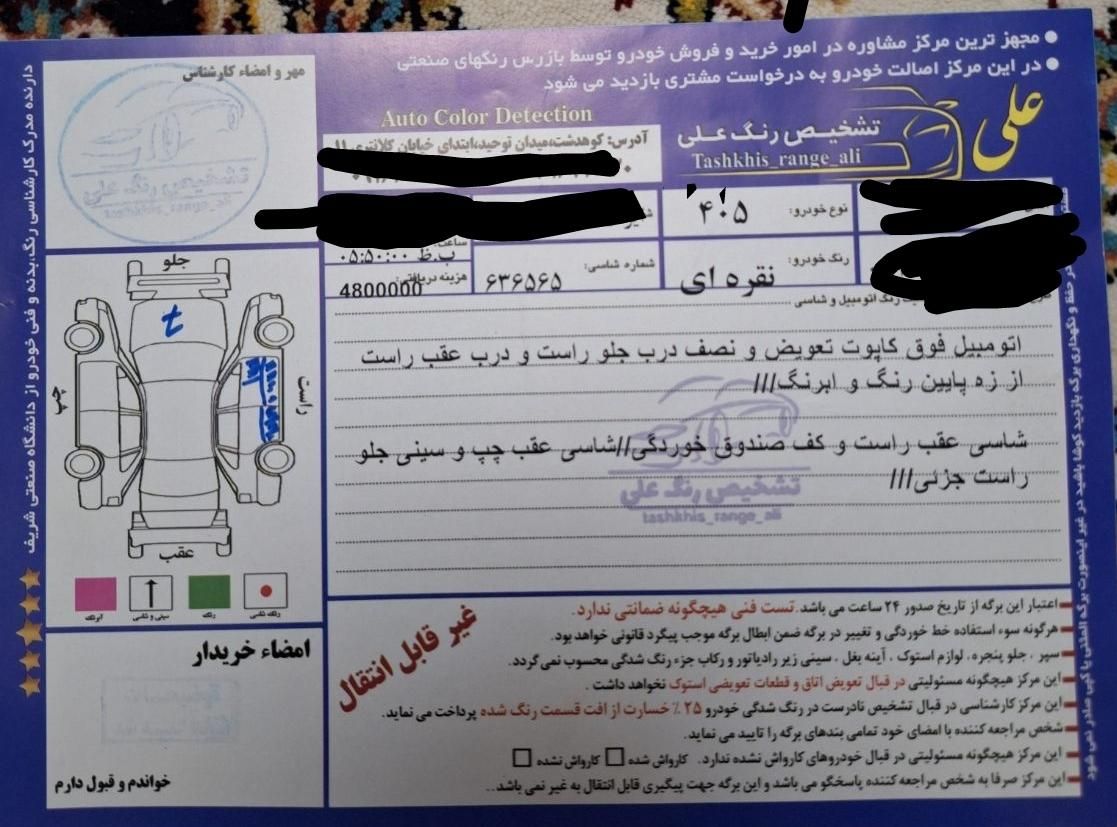 مجهز ترین مرکز مشاوره در امور خرید و فروش خودرو توسط بازرس رنگهای صنعتی
در این مرکز اصالت خودرو به درخواست مشتری بازدید می شود
علی
تشخیص رنگ علی
Tashkhis_range_ali
Auto Color Detection
آدرس: کوهدشت،میدان توحید،ابتدای خیابان کلانتری ۱۱
مهر و امضاء کارشناس
تشخیص رنگ علی
tashkhis_range_ali
نوع خودرو: ۴۰۵
ساعت: ۰۵:۵۰:۰۰ ب.ظ
رنگ خودرو: نقره ای
شماره شاسی: ۶۳۶۵۶۵
هزینه دریافتی: 4800000
رنگ اتومبیل و شاسی
اتومبیل فوق کاپوت تعویض و نصف درب جلو راست و درب عقب راست
از زه پایین رنگ و ابرنگ///
شاسی عقب راست و کف صندوق خوردگی//شاسی عقب چپ و سینی جلو
راست جزئی///
تشخیص رنگ علی
tashkhis_range_ali
جلو
ت
چپ
راست
عقب
رنگ شاسی
رنگ
سینی و شاسی
آبرنگ
امضاء خریدار
خواندم و قبول دارم
غیر قابل انتقال
اعتبار این برگه از تاریخ صدور ۲۴ ساعت می باشد. تست فنی هیچگونه ضمانتی ندارد.
هرگونه سوء استفاده خط خوردگی و تغییر در برگه ضمن ابطال برگه موجب پیگرد قانونی خواهد بود.
سپر ، جلو پنجره، لوازم استوک ، آینه بغل ، سینی زیر رادیاتور و رکاب جزء رنگ شدگی محسوب نمی گردد.
این مرکز هیچگونه مسئولیتی در قبال تعویض اتاق و قطعات تعویضی استوک نخواهد داشت .
این مرکز کارشناسی در قبال تشخیص نادرست در رنگ شدگی خودرو ۲۵ ٪ خسارت از افت قسمت رنگ شده پرداخت می نماید.
شخص مراجعه کننده با امضای خود تمامی بندهای برگه را تایید می نماید.
این مرکز هیچگونه مسئولیتی در قبال خودروهای کارواش نشده ندارد. کارواش شده کارواش نشده
این مرکز صرفا به شخص مراجعه کننده پاسخگو می باشد و این برگه جهت پیگیری قابل انتقال به غیر نمی باشد..
دارنده مدرک کارشناسی رنگ،بدنه و فنی خودرو از دانشگاه صنعتی شریف
در حفظ و نگهداری برگه بازدید کوشا باشید در غیر اینصورت برگه المثنی یا کپی صادر نمی شود